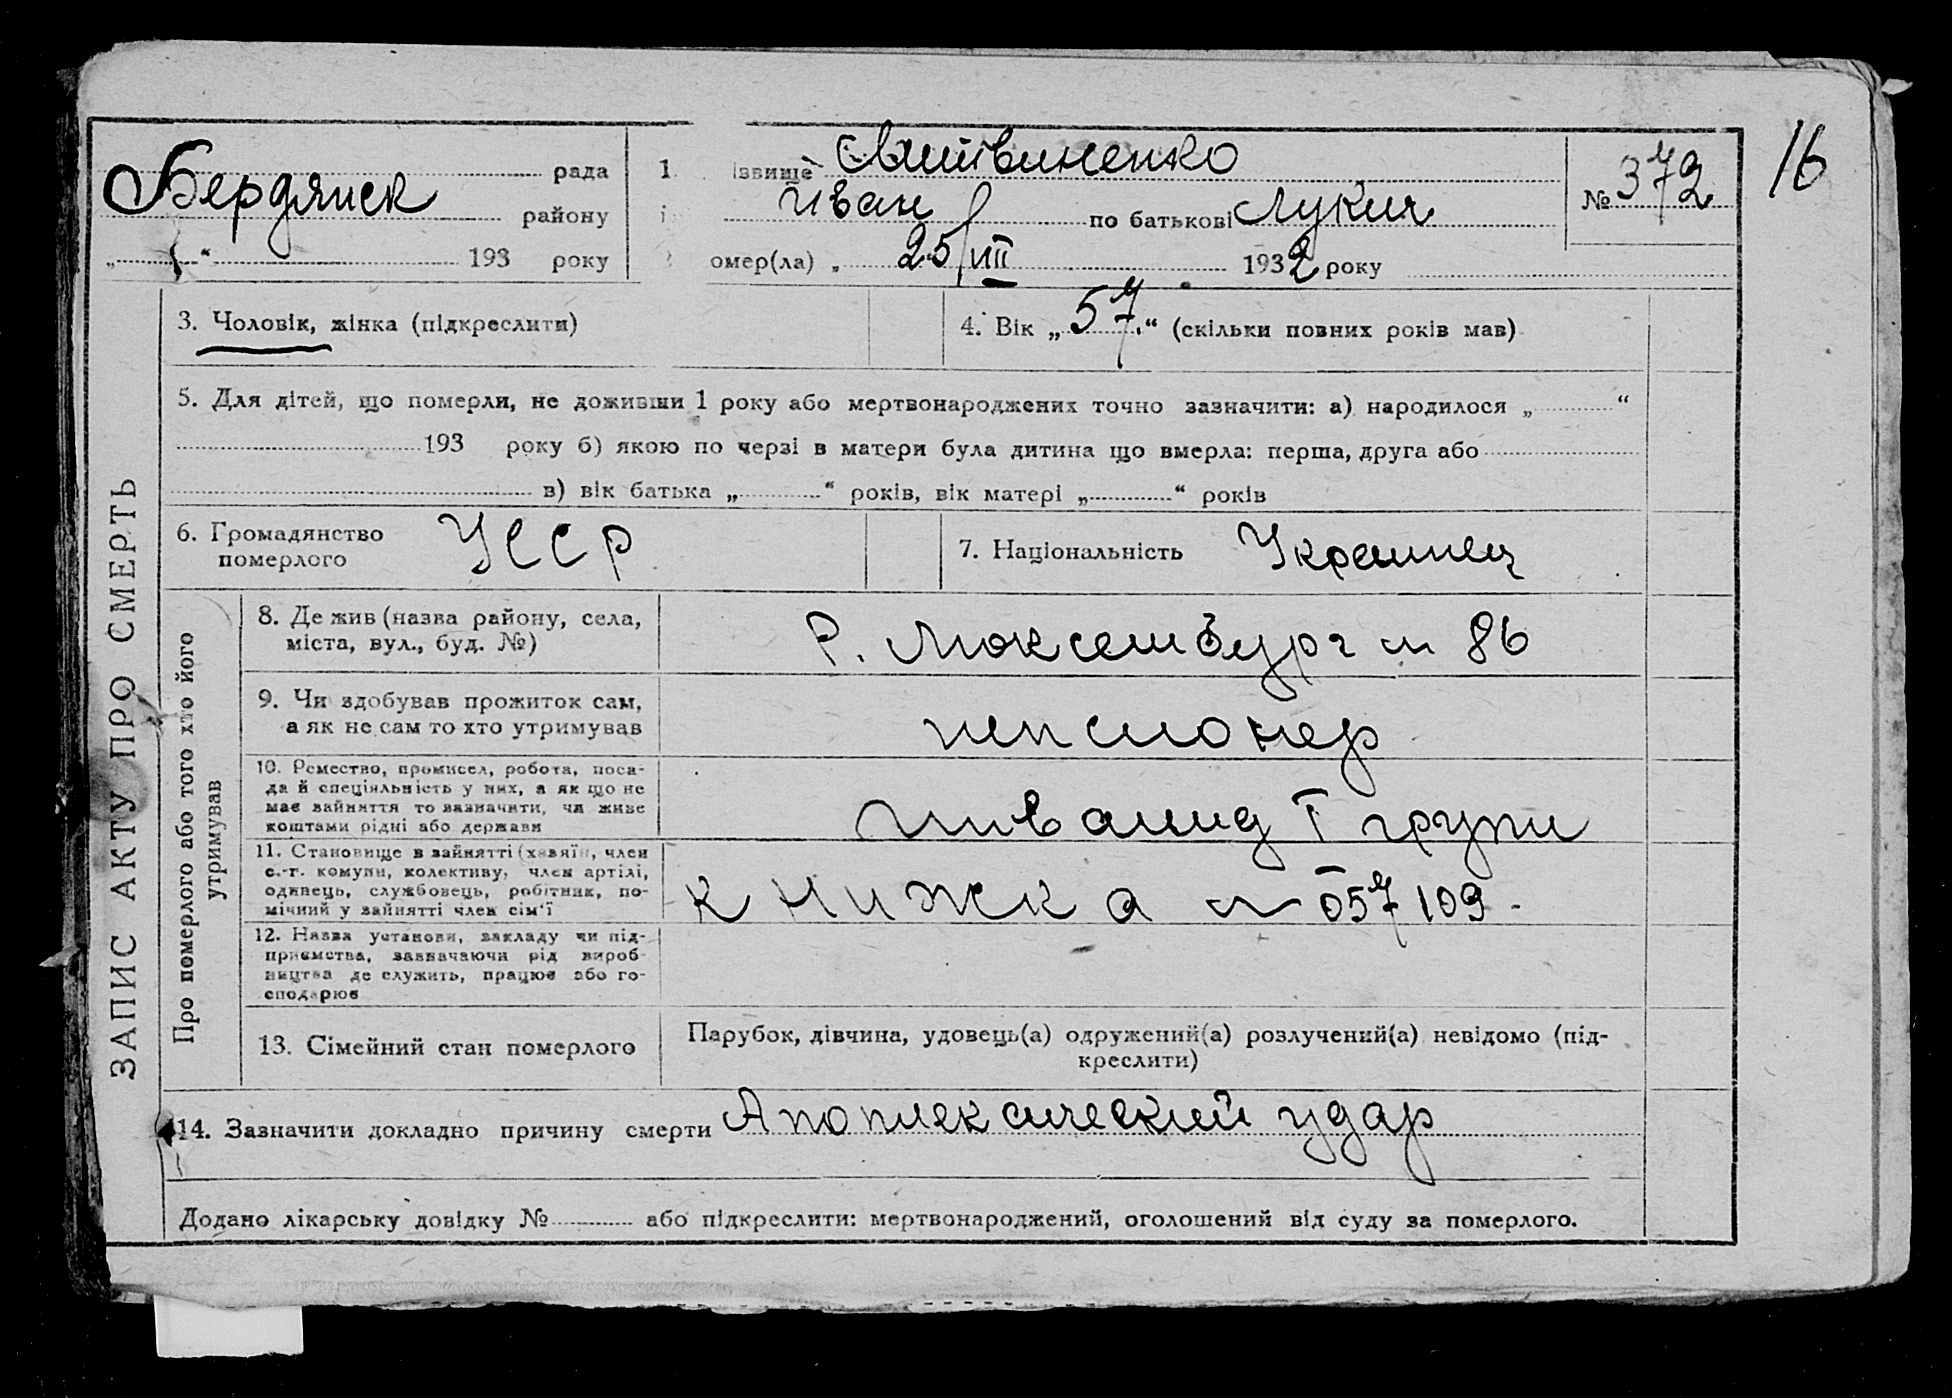 16
Бердянск рада
району
„ “ 193 року
1. ізвище Литвиненко
Иван по батькові Лукич
омер(ла) „ 25/VIII 1932 року
№ 372
3. Чоловік, жінка (підкреслити)
4. Вік „57“ (скільки повних років мав)
5. Для дітей, що померли, не доживши 1 року або мертвонароджених точно зазначити: а) народилося „ “
193 року б) якою по черзі в матери була дитина що вмерла: перша, друга або
в) вік батька „ “ років, вік матері „ “ років
6. Громадянство
померлого
УССР
7. Національність Украинец
ЗАПИС АКТУ ПРО СМЕРТЬ
Про померлого або того хто його
утримував
8. Де жив (назва району, села,
міста, вул., буд. №)
Р. Люксембург № 86
9. Чи здобував прожиток сам,
а як не сам то хто утримував
пенсионер
10. Ремество, промисел, робота, поса-
да й спеціяльність у них, а як що не
має зайняття то зазначити, чи живе
коштами рідні або держави
инвалид I групи
11. Становище в зайнятті (хазяїн, член
с.-г. комуни, колективу, член артілі,
одинець, службовець, робітник, по-
мічний у зайнятті член сім'ї
книжка № 057109
12. Назва установи, закладу чи під-
приємства, зазначаючи рід вироб-
ництва де служить, працює або го-
сподарює
13. Сімейний стан померлого
Парубок, дівчина, удовець(а) одружений(а) розлучений(а) невідомо (під-
креслити)
14. Зазначити докладно причину смерти Апоплексический удар
Додано лікарську довідку № або підкреслити: мертвонароджений, оголошений від суду за померлого.